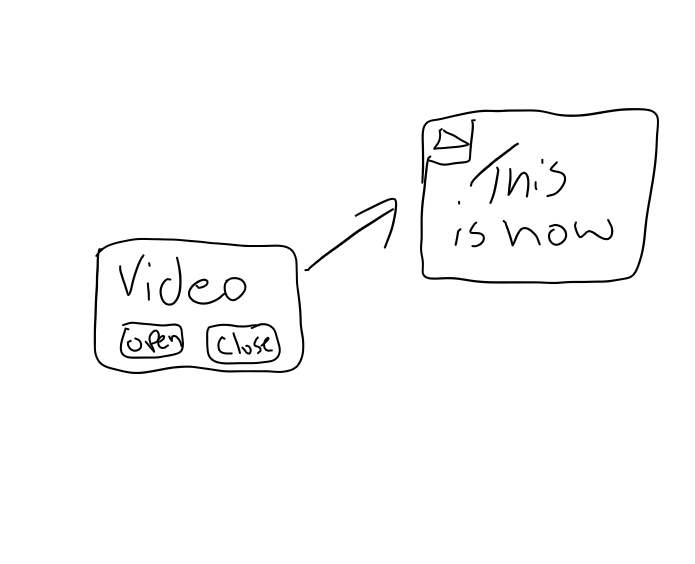 Video
open
Close
This
is now